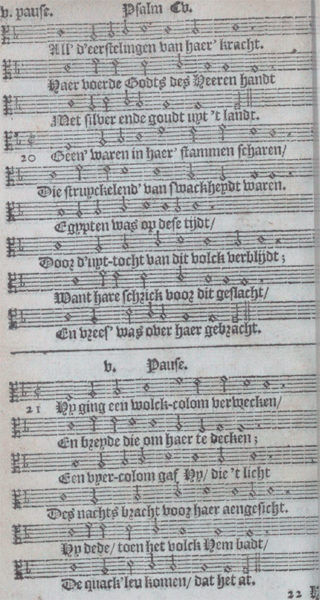 v. pause. Psalm Cv.
All' d'eerstelingen van haer' kracht.
Haer voerde Godts des Heeren handt
Met silver ende goudt uyt 't landt.
20 Geen' waren in haer' stammen scharen/
Die struyckelend' van swackheydt waren.
Egypten was op dese tijdt/
Door d'uyt-tocht van dit volck verblijdt;
Want hare schrick voor dit geslacht/
En vrees' was over haer gebracht.
v. Pause.
21 Hy ging een wolck-colom verwecken/
En breyde die om haer te decken;
Een vyer-colom gaf Hy/ die 't licht
Des nachts bracht voor haer aengesicht.
Hy dede/ toen het volck Hem badt/
De quack'len komen/ dat het at.
22 H